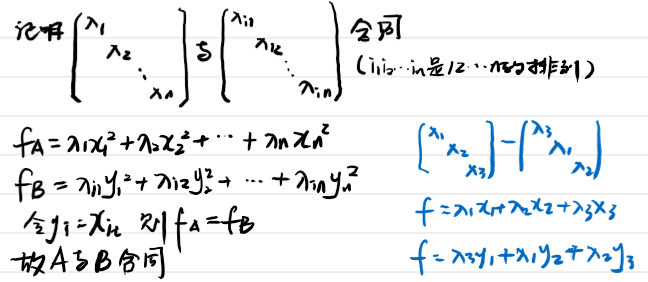 证明 [λ1 λ2 ⋱ λn] 与 [λi1 λi2 ⋱ λin] 合同
(i1i2…in是12…n的排列)
fA = λ1x1² + λ2x2² + … + λnxn²
fB = λi1y1² + λi2y2² + … + λinyn²
令yi = xit 则 fA = fB
故A与B合同
[λ1 λ2 λ3] – [λ3 λ1 λ2]
f = λ1x1 + λ2x2 + λ3x3
f = λ3y1 + λ1y2 + λ2y3